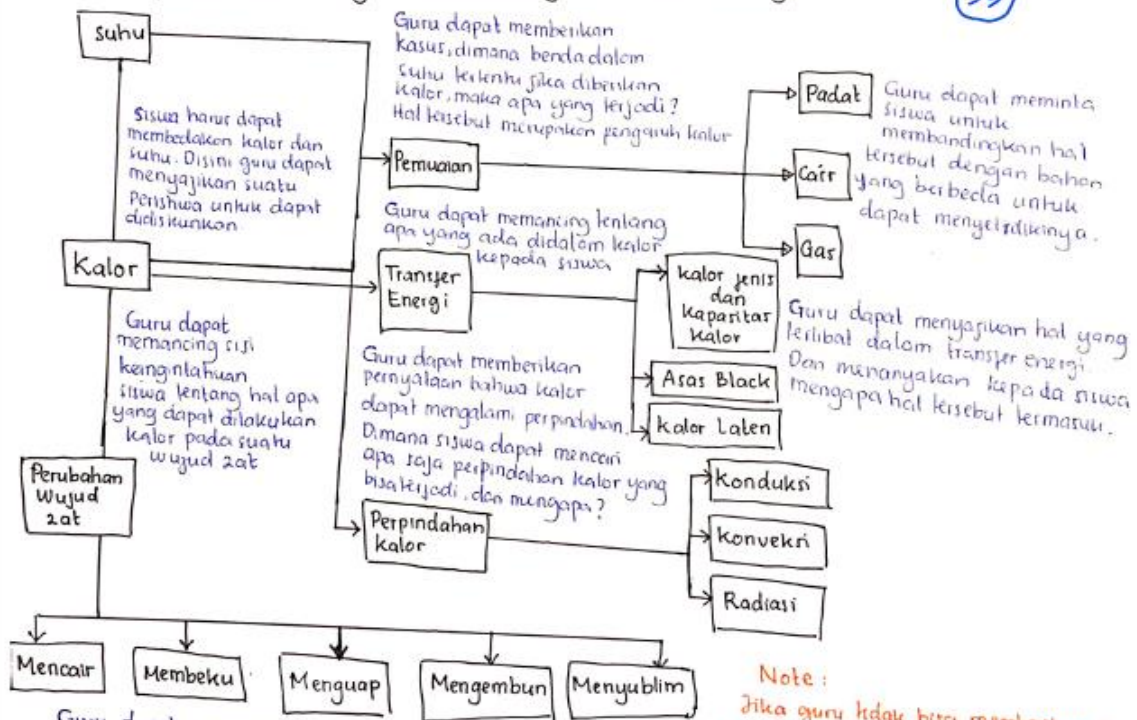 suhu
Guru dapat memberikan
kasus, dimana benda dalam
suhu tertentu jika diberikan
kalor, maka apa yang terjadi?
Hal tersebut merupakan pengaruh kalor
Siswa harus dapat
membedakan kalor dan
suhu. Disini guru dapat
menyajikan suatu
Peristiwa untuk dapat
didiskusikan
Pemuaian
Padat
Cair
Gas
Guru dapat meminta
siswa untuk
membandingkan hal
tersebut dengan bahan
yang berbeda untuk
dapat menyelidikinya.
Kalor
Guru dapat memancing tentang
apa yang ada didalam kalor
kepada siswa
Transfer
Energi
kalor jenis
dan
kapasitas
kalor
Asas Black
kalor Laten
Guru dapat menyajikan hal yang
terlibat dalam transfer energi.
Dan menanyakan kepada siswa
mengapa hal tersebut termasuk.
Guru dapat
memancing sisi
keingintahuan
siswa tentang hal apa
yang dapat dilakukan
kalor pada suatu
wujud zat
Guru dapat memberikan
pernyataan bahwa kalor
dapat mengalami perpindahan.
Dimana siswa dapat mencari
apa saja perpindahan kalor yang
bisa terjadi, dan mengapa?
Perubahan
Wujud
zat
Perpindahan
kalor
Konduksi
konveksi
Radiasi
Mencair
Membeku
Menguap
Mengembun
Menyublim
Note:
Jika guru tidak bisa